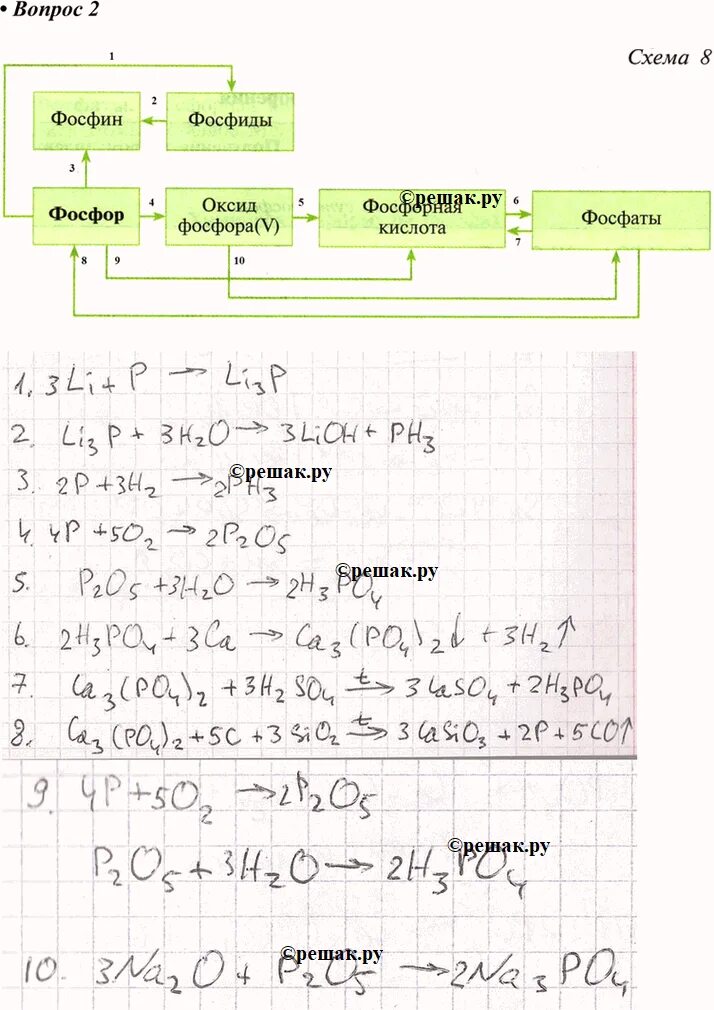 • Вопрос 2
Схема 8
1
Фосфин
2
Фосфиды
3
Фосфор
4
Оксид
фосфора(V)
5
Фосфорная
кислота
6
7
Фосфаты
8
9
10
©решак.ру
1. 3Li + P → Li₃P
2. Li₃P + 3H₂O → 3LiOH + PH₃
3. 2P + 3H₂ → 2PH₃
©решак.ру
4. 4P + 5O₂ → 2P₂O₅
5. P₂O₅ + 3H₂O → 2H₃PO₄
©решак.ру
6. 2H₃PO₄ + 3Ca → Ca₃(PO₄)₂↓ + 3H₂↑
7. Ca₃(PO₄)₂ + 3H₂SO₄ t→ 3CaSO₄ + 2H₃PO₄
8. Ca₃(PO₄)₂ + 5C + 3SiO₂ t→ 3CaSiO₃ + 2P + 5CO↑
9. 4P + 5O₂ → 2P₂O₅
P₂O₅ + 3H₂O → 2H₃PO₄
©решак.ру
10. 3Na₂O + P₂O₅ → 2Na₃PO₄
©решак.ру